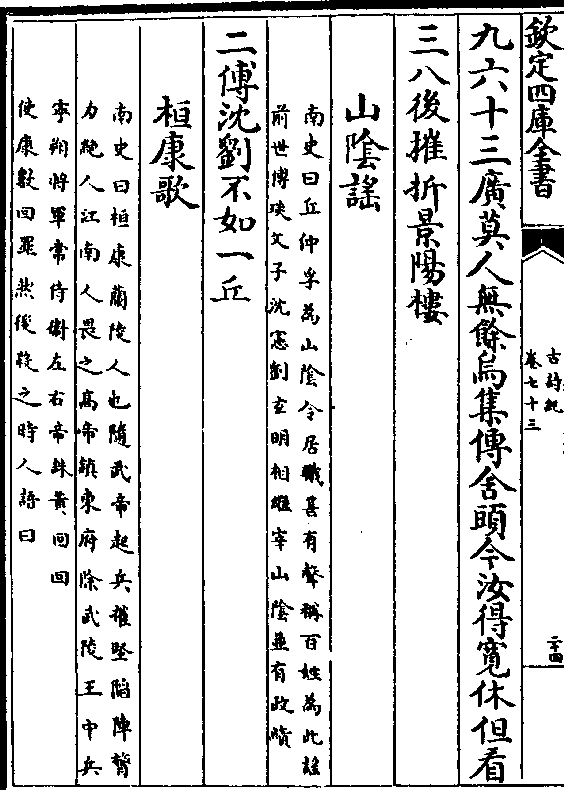 欽定四庫全書
古詩紀
卷七十三
二十四
九六十三廣莫人無餘烏集傳舍頭今汝得寬休但看
三八後摧折景陽樓
山陰謡
南史曰丘仲孚為山陰令居職甚有聲稱百姓為此謡
前世傅琰父子沈憲劉玄明相繼宰山陰並有政績
二傅沈劉不如一丘
桓康歌
南史曰桓康蘭陵人也隨武帝起兵摧堅陷陣膂
力絶人江南人畏之高帝鎮東府除武陵王中兵
寜朔將軍常侍衛左右帝誅黄回回
使康數回罪然後殺之時人語曰